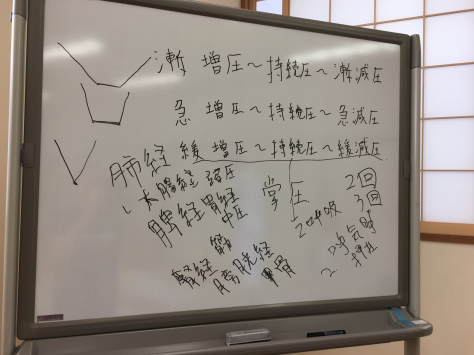 漸増圧〜持続圧〜漸減圧
急増圧〜持続圧〜急減圧
緩増圧〜持続圧〜緩減圧
肺経
大腸経
脾経 胃経
中圧
掌圧
2呼吸
2回
3回
腎経
膀胱経